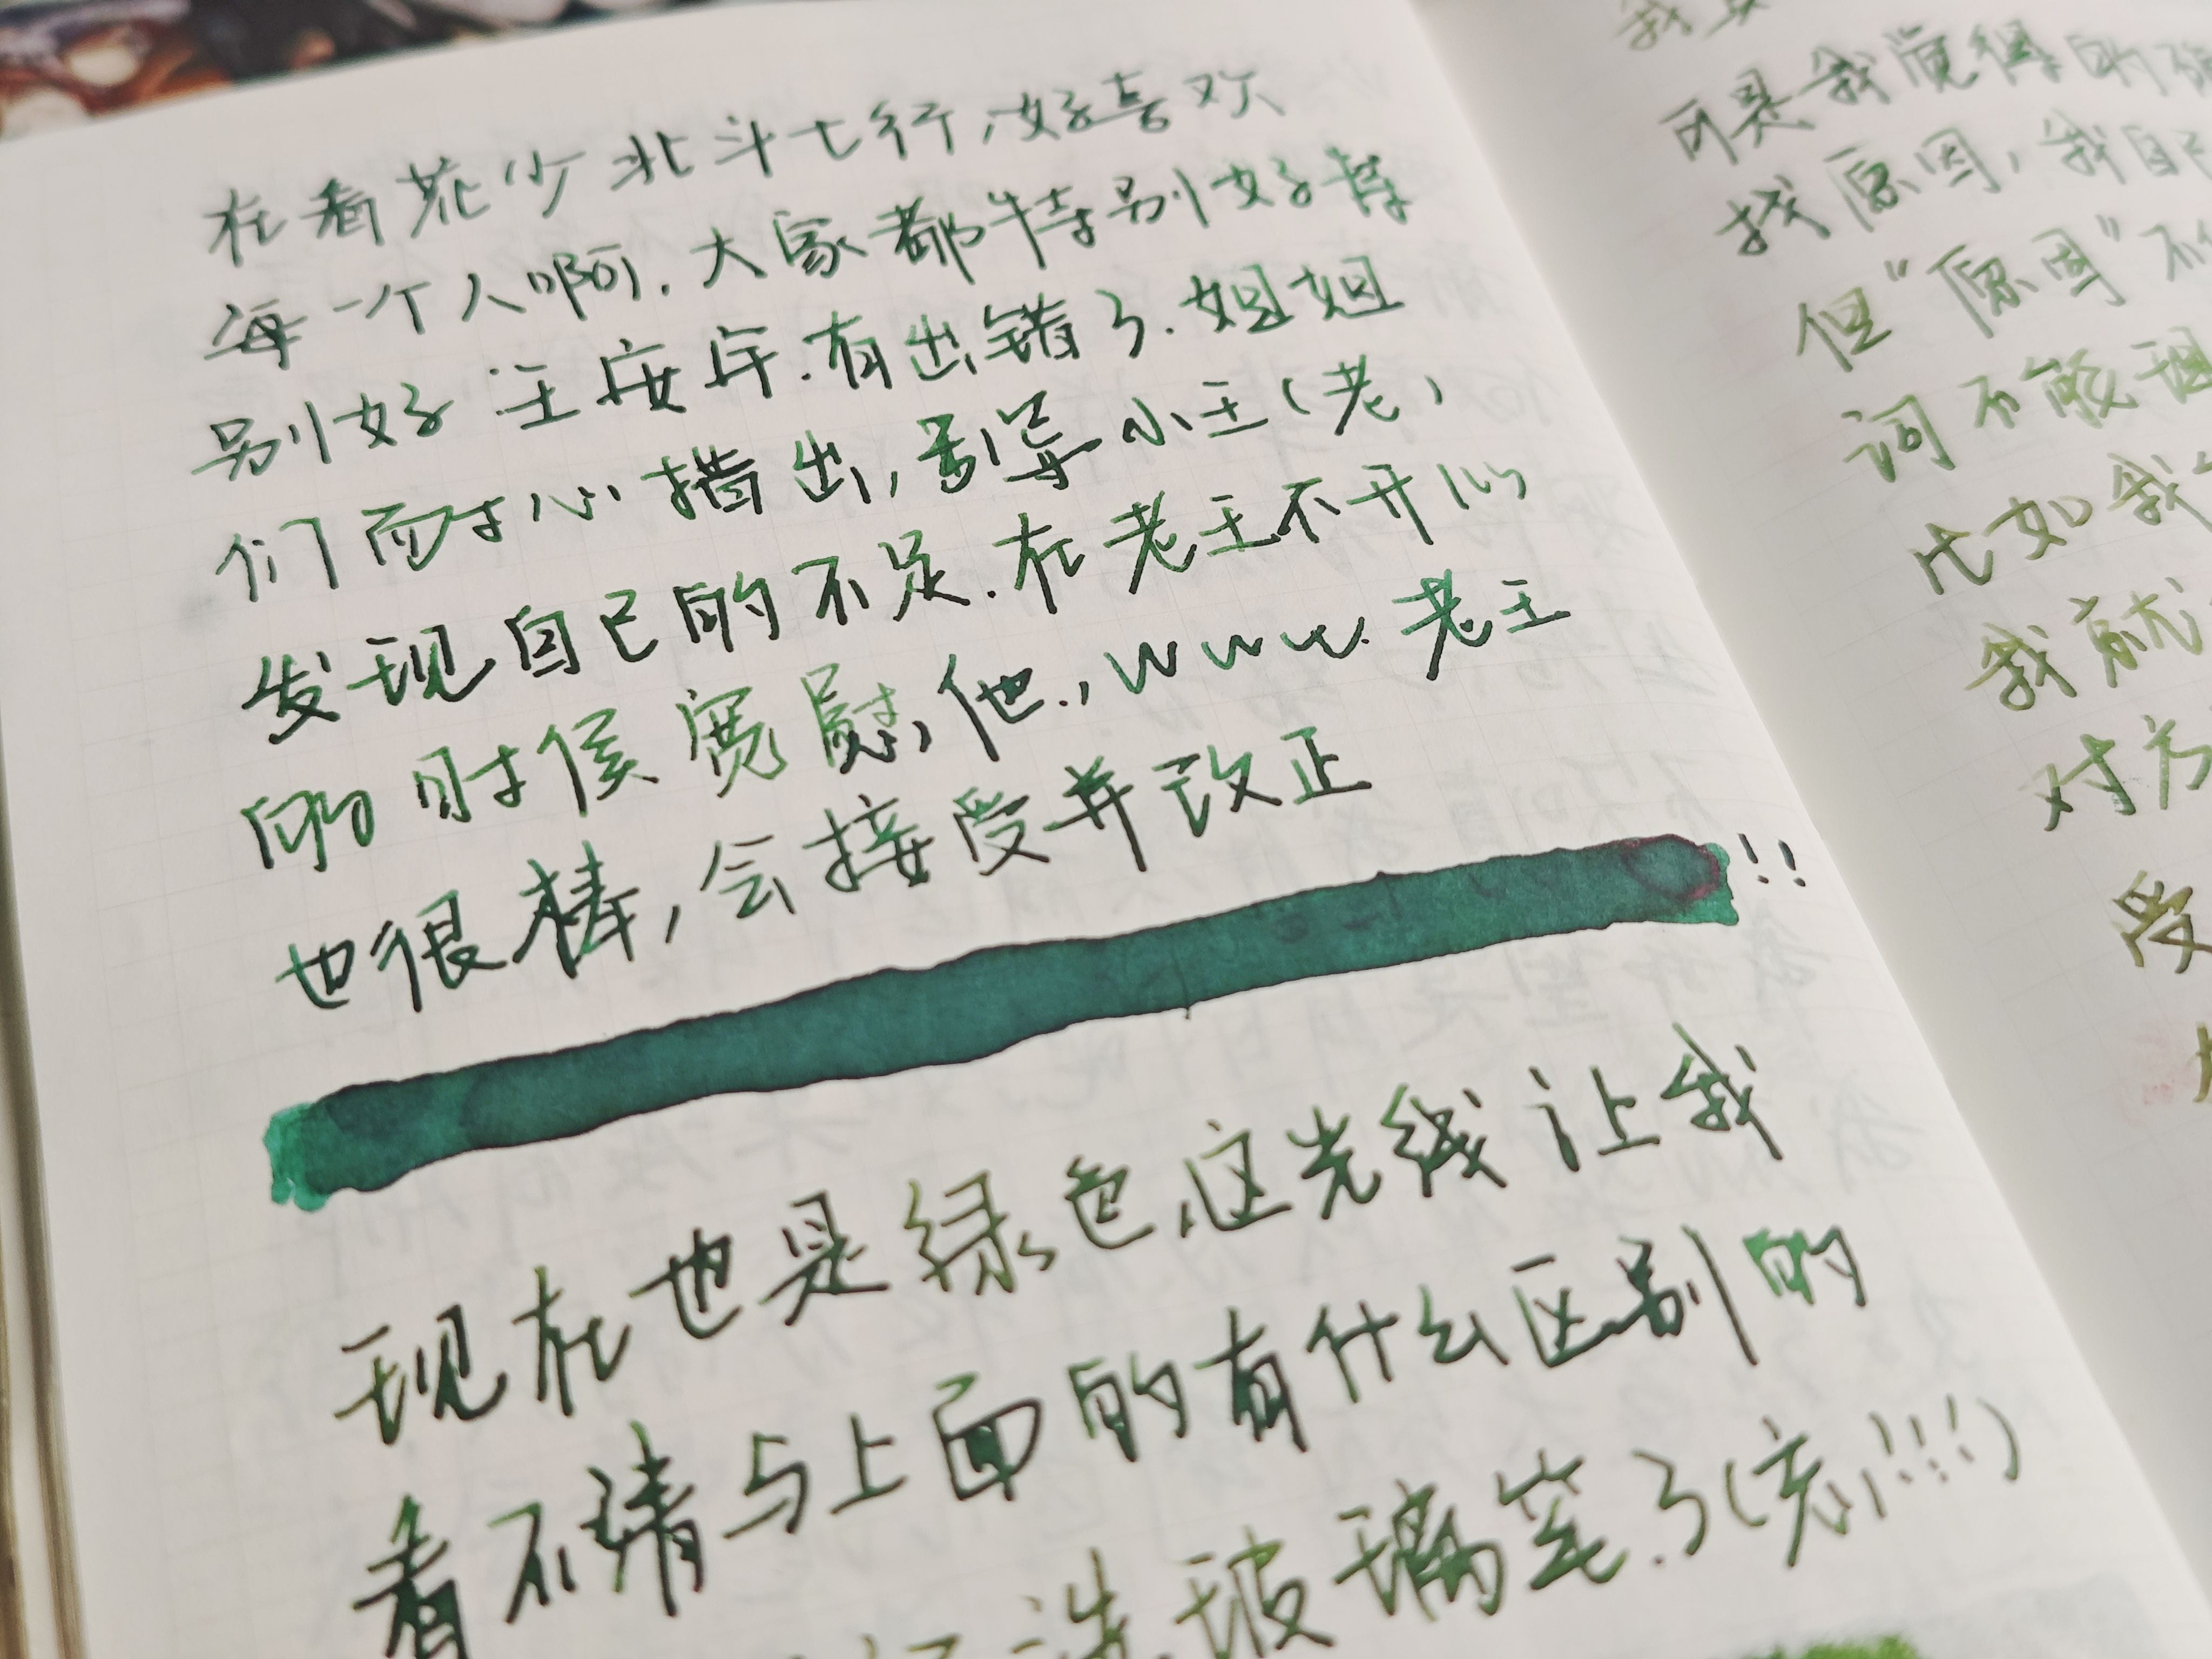 在看花少北斗七行,好喜欢
每一个人啊.大家都特别好特
别好 王安宇.有出错了.姐姐
们耐心指出,引导小王(老)
发现自己的不足.在老王不开心
的时候宽慰,他.,wuu.老王
也很棒,会接受并改正
!!
现在也是绿色,这光线让我
看不清与上面的有什么区别的
洗玻璃笔.了(亮!!!)
可是我觉得的
找原因,我自己
但"原因"不
词不够
比如我
我就
对方
受